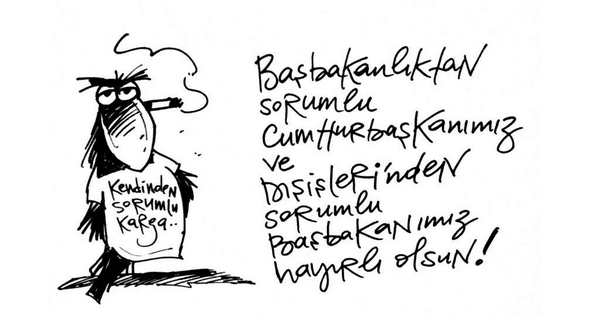 Kendinden
sorumlu
karga..
Başbakanlıktan
sorumlu
Cumhurbaşkanımız
ve
Dışişleri'nden
sorumlu
Başbakanımız
hayırlı olsun!